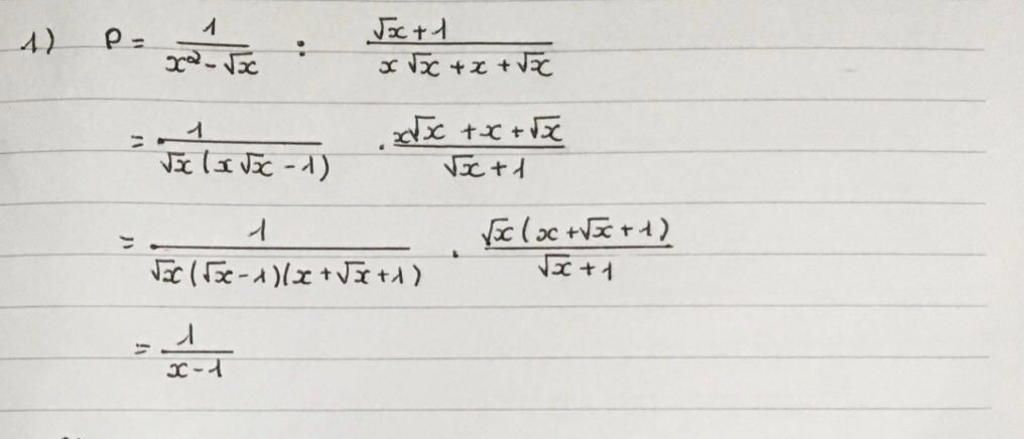 1) P = 1/(x² - √x) : (√x + 1)/(x√x + x + √x)
= 1/(√x(x√x - 1)) . (x√x + x + √x)/(√x + 1)
= 1/(√x(√x - 1)(x + √x + 1)) . √x(x + √x + 1)/(√x + 1)
= 1/(x - 1)